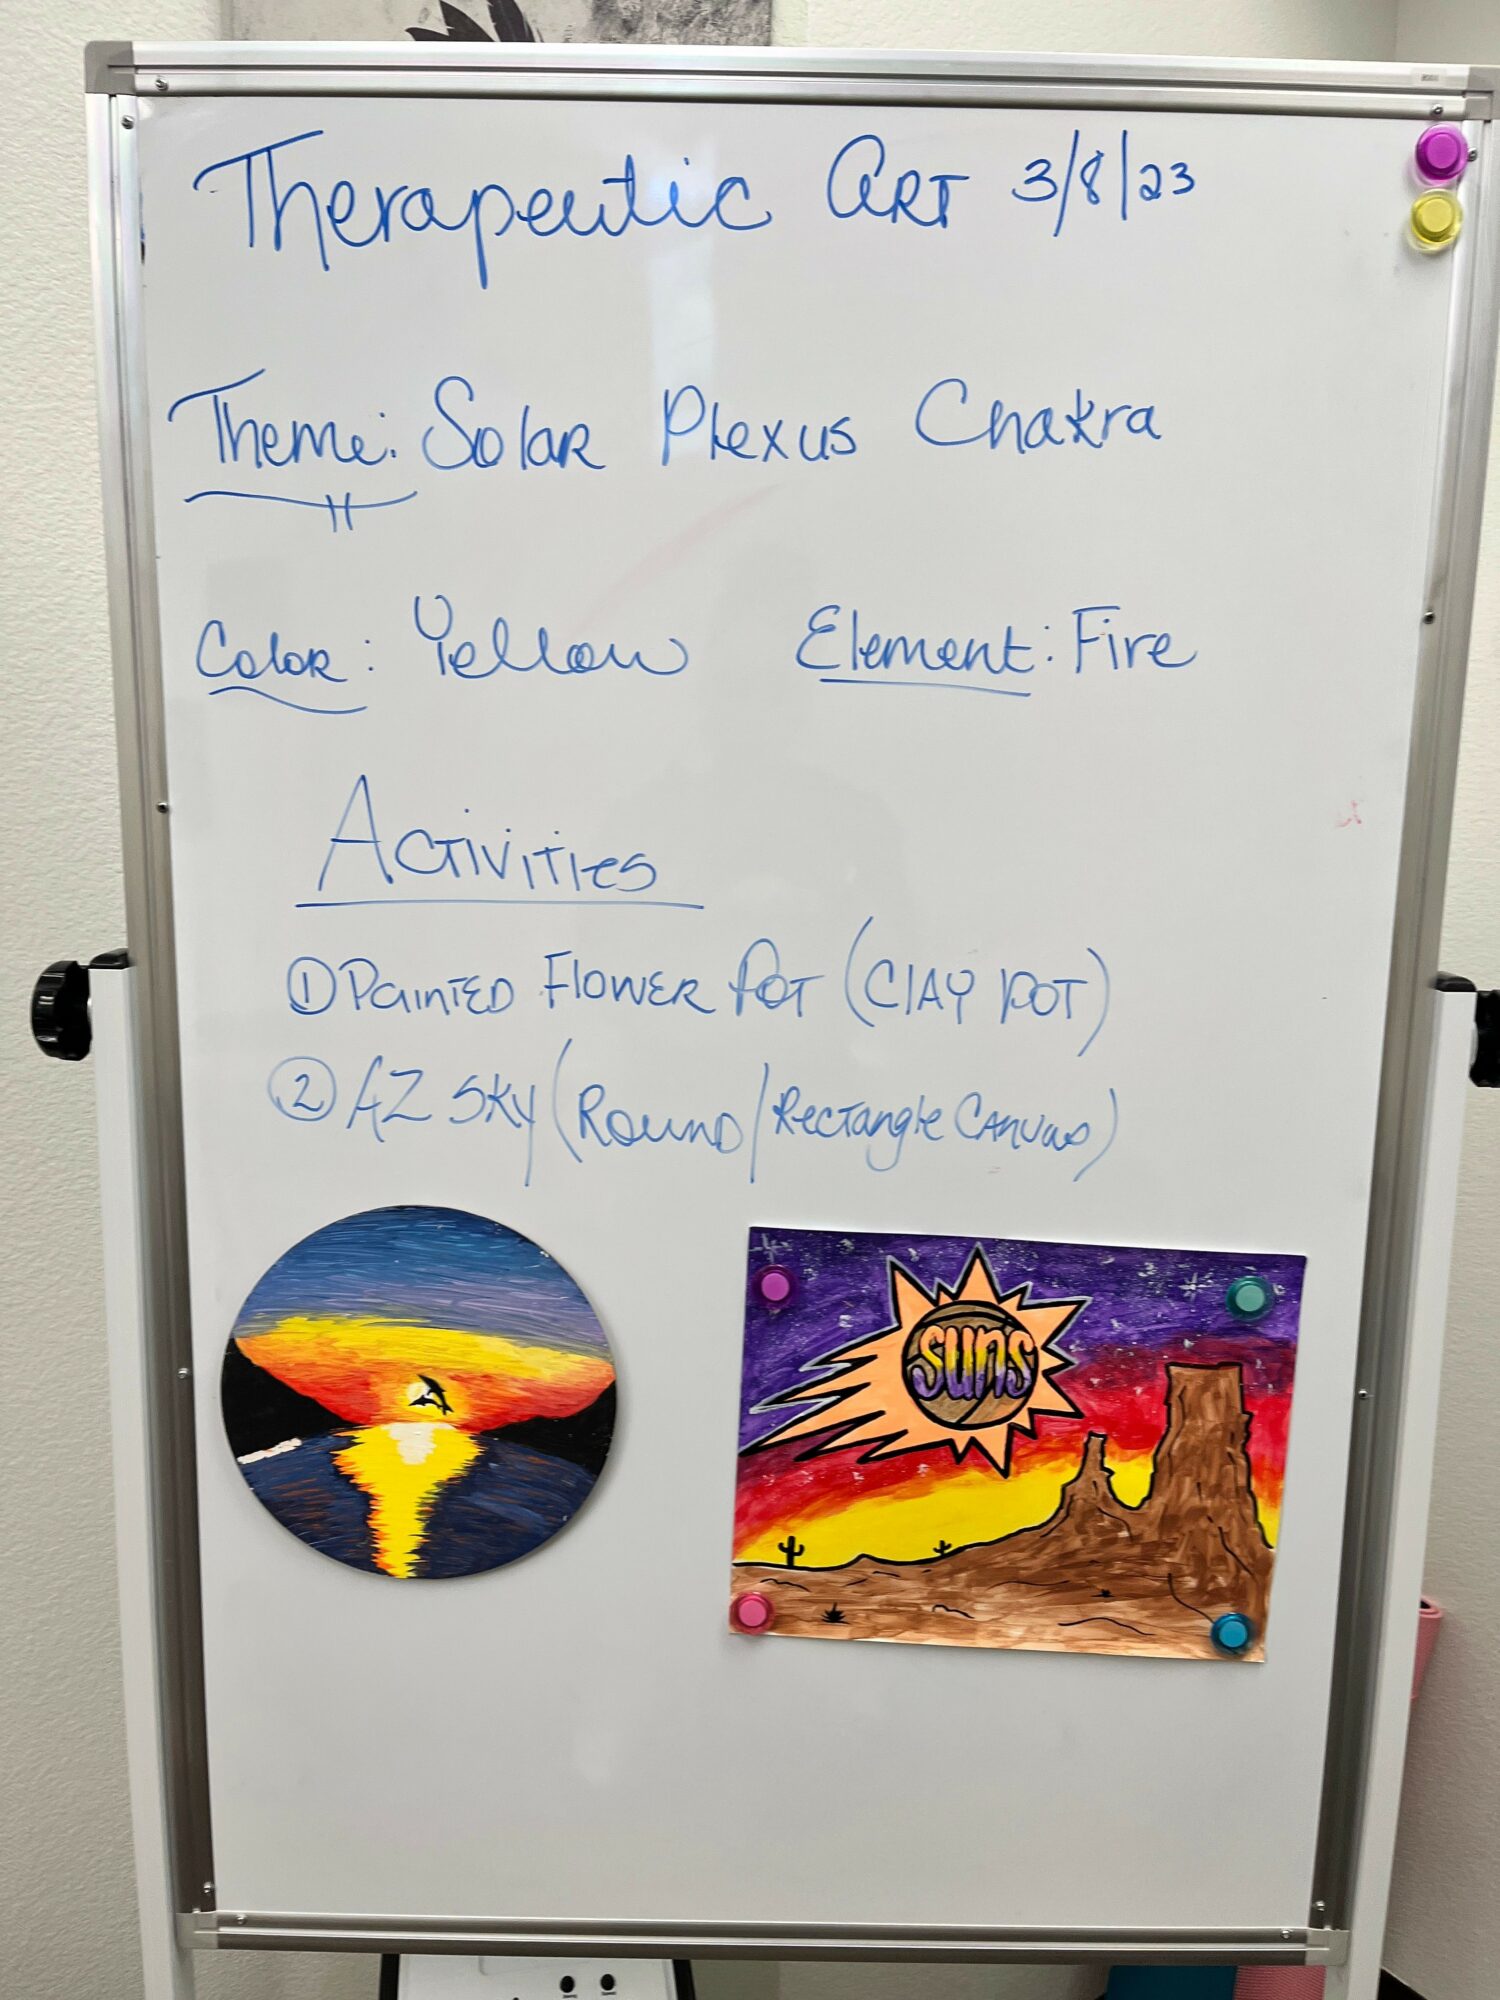 Therapeutic Art 3/8/23
Theme: Solar Plexus Chakra
Color: Yellow Element: Fire
Activities
① Painted Flower Pot (Clay Pot)
② AZ Sky (Round/Rectangle Canvas)
SUNS